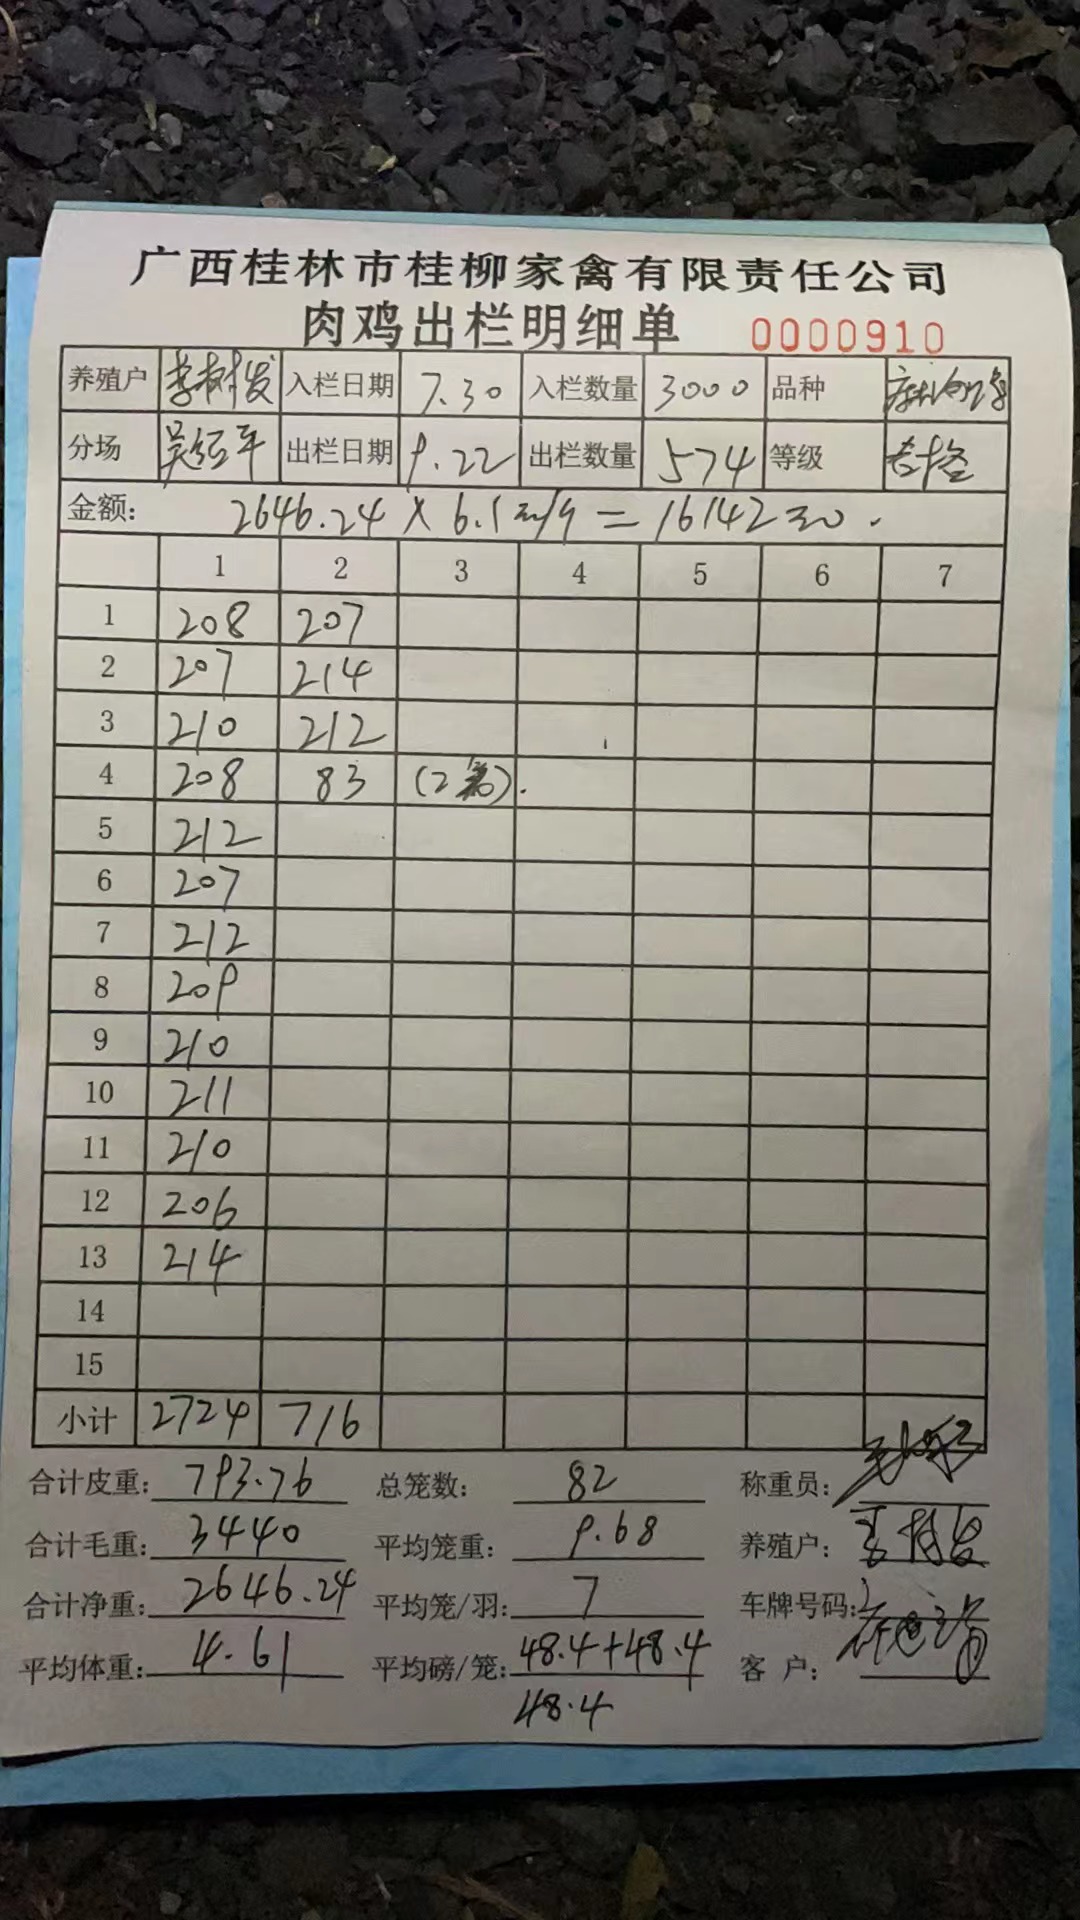 广西桂林市桂柳家禽有限责任公司
肉鸡出栏明细单 0000910
养殖户 李树发 入栏日期 7.30 入栏数量 3000 品种
分场 出栏日期 9.22 出栏数量 574 等级
金额: 2646.24 × 6.1元/斤 = 16142元.
1 2 3 4 5 6 7
1 208 207
2 207 214
3 210 212
4 208 83 (2笼).
5 212
6 207
7 212
8 209
9 210
10 211
11 210
12 206
13 214
14
15
小计 2724 716
合计皮重: 793.76 总笼数: 82 称重员:
合计毛重: 3440 平均笼重: 9.68 养殖户: 李树发
合计净重: 2646.24 平均笼/羽: 7 车牌号码:
平均体重: 4.61 平均磅/笼: 48.4+48.4 客 户:
48.4